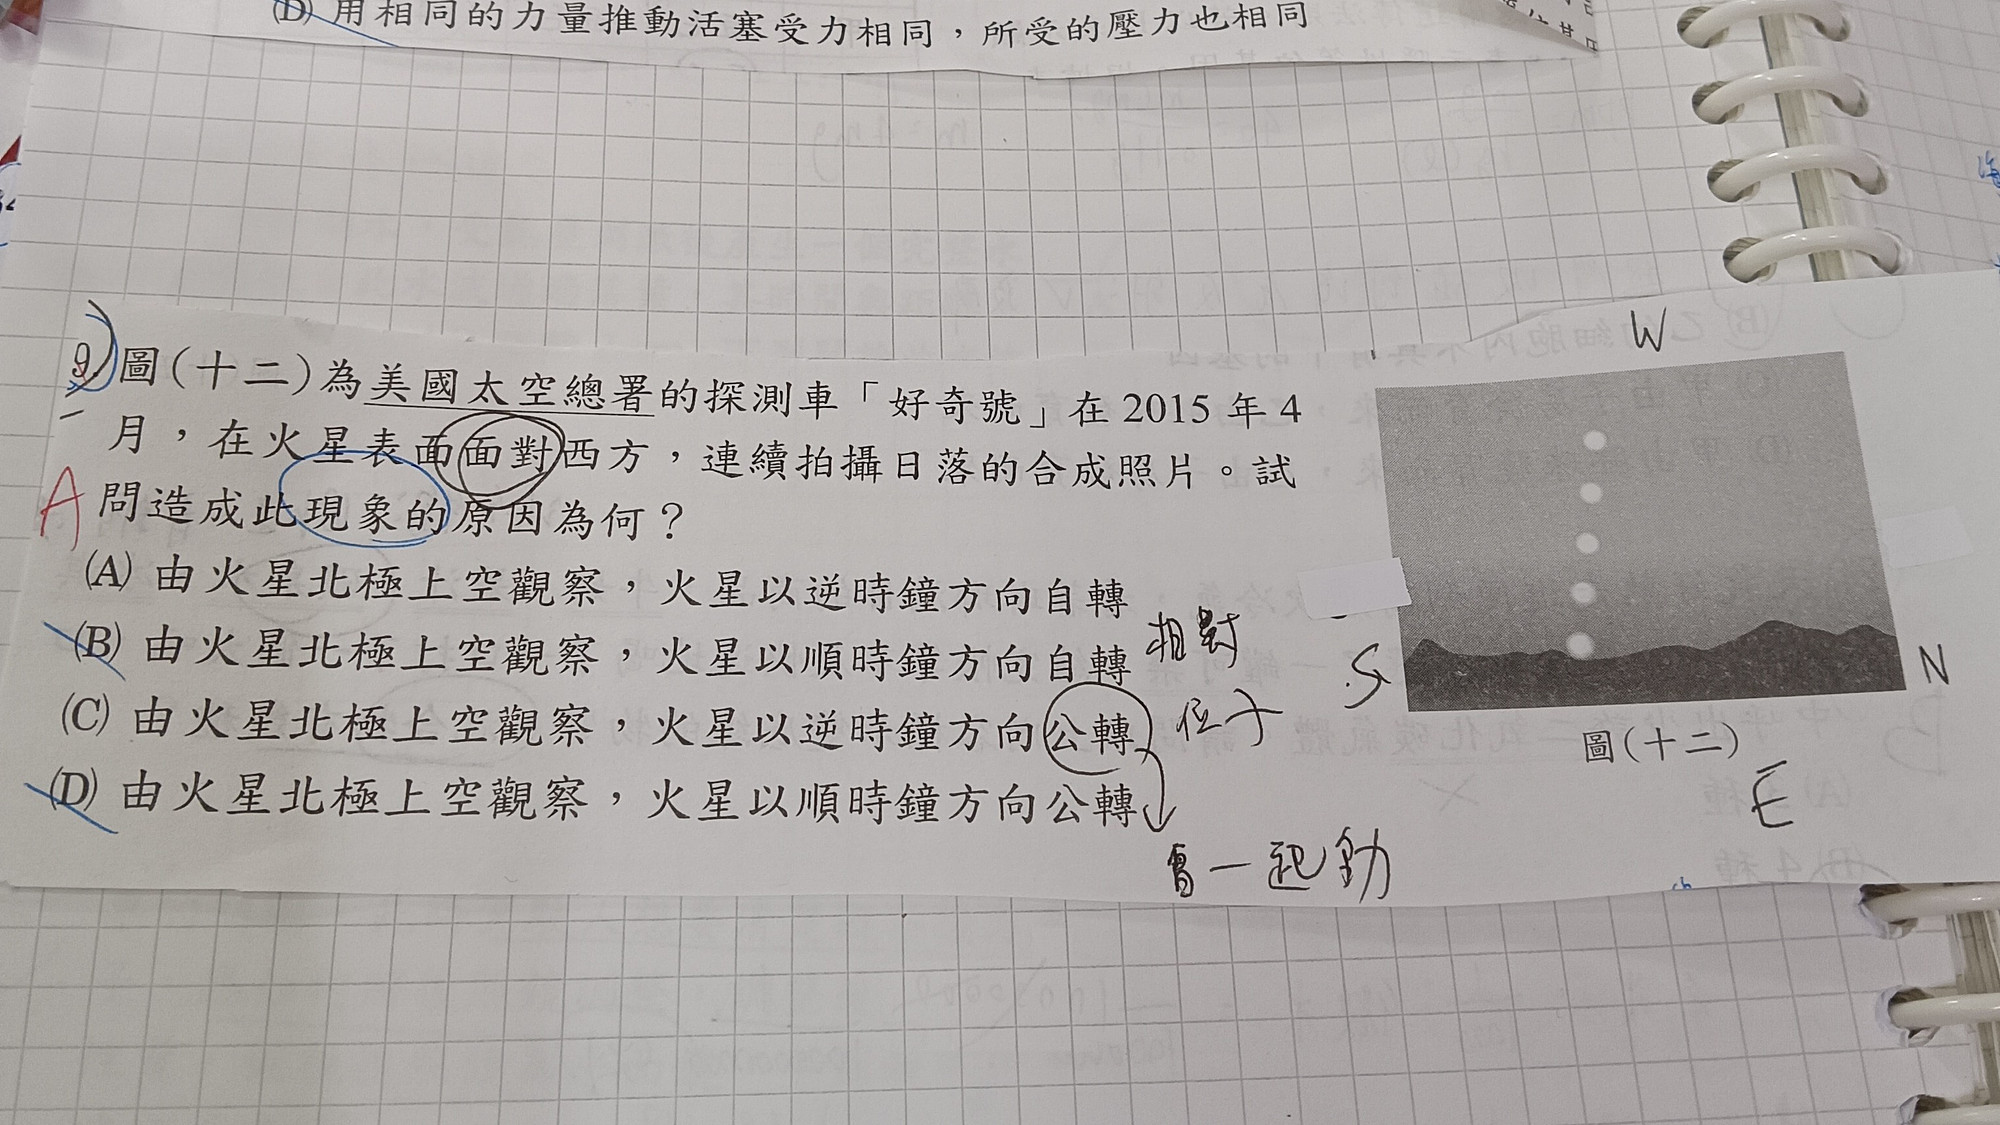 (D) 用相同的力量推動活塞受力相同，所受的壓力也相同
9. 圖(十二)為美國太空總署的探測車「好奇號」在 2015 年 4
月，在火星表面面對西方，連續拍攝日落的合成照片。試
問造成此現象的原因為何？
A
(A) 由火星北極上空觀察，火星以逆時鐘方向自轉
(B) 由火星北極上空觀察，火星以順時鐘方向自轉
(C) 由火星北極上空觀察，火星以逆時鐘方向公轉
(D) 由火星北極上空觀察，火星以順時鐘方向公轉
相對
位子
會一起動
W
S
N
E
圖(十二)